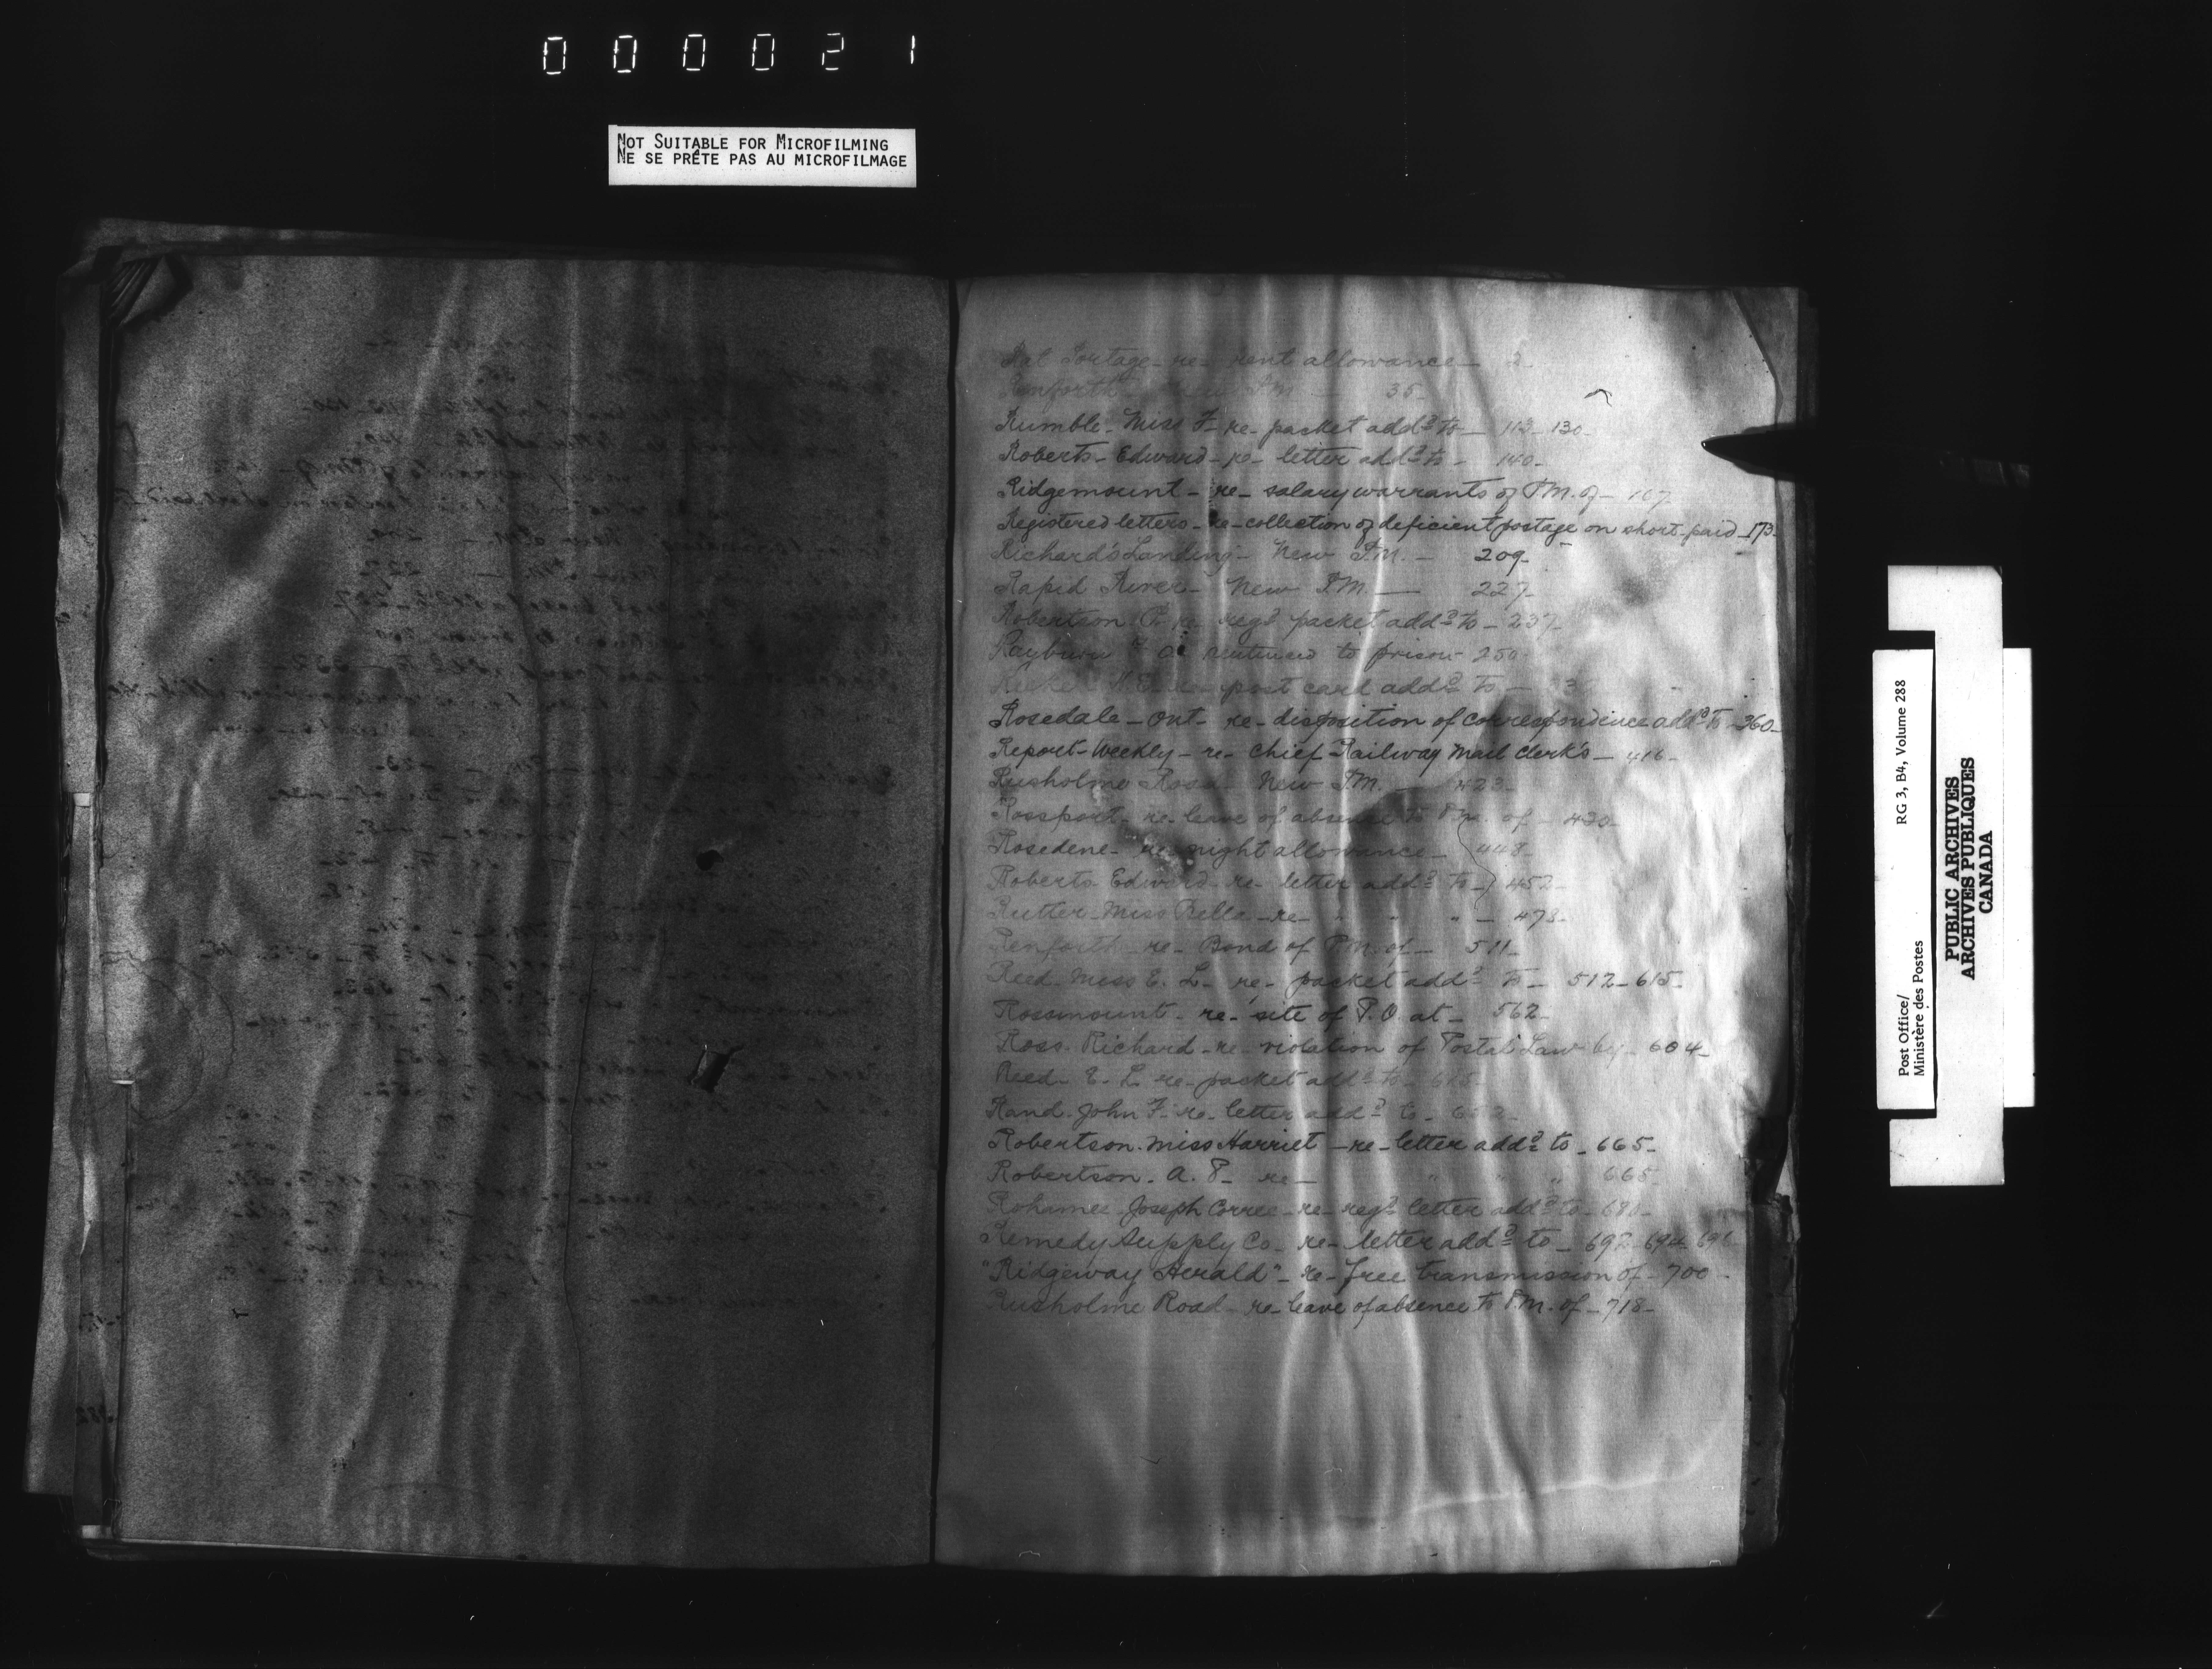 000021
NOT SUITABLE FOR MICROFILMING
NE SE PRÊTE PAS AU MICROFILMAGE
Rat Portage - re - rent allowance - 2
Renforth - New P.M. - 35
Rumble - Miss F - re - packet addd to - 113 - 130 -
Roberts - Edward - re - letter addd to - 140 -
Ridgemount - re - salary warrants of P.M. of - 167
Registered letters - re - collection of deficient postage on short-paid - 173 -
Richard's Landing - New P.M. - 209 -
Rapid River - New P.M. - 227 -
Robertson re regd packet addd to - 237 -
Rayburn sentenced to prison - 250
post card addd to -
Rosedale - Ont - re - disposition of correspondence addd to - 360 -
Report - Weekly - re - Chief Railway Mail Clerk's - 416 -
Rusholme Road - New P.M. - 423 -
Rossport - re - leave of absence to P.M. of - 430 -
Rosedene - re - night allowance - 448 -
Roberts Edward - re - letter addd to - 452 -
Rutter - Miss Bella - re - " " " - 473 -
Renforth - re - Bond of P.M. of - 511 -
Reed - Miss E. L. - re - packet addd to - 512 - 615 -
Rossmount - re - site of P.O. at - 562 -
Ross - Richard - re - violation of Postal Law by - 604 -
Reed - E. L. re - packet addd to - 615
Rand - John F. - re - letter addd to -
Robertson - Miss Harriet - re - letter addd to - 665 -
Robertson - A. P. - re - " " " 665 -
Rohamee - Joseph Corree - re - regd letter addd to - 680 -
Remedy Supply Co - re - letter addd to - 692 - 694 - 696
"Ridgeway Herald" - re - free transmission of - 700 -
Rusholme Road - re - leave of absence to P.M. of - 718 -
Post Office/
Ministère des Postes
RG 3, B4, Volume 288
PUBLIC ARCHIVES
ARCHIVES PUBLIQUES
CANADA